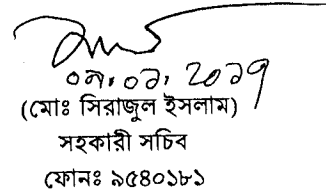 ০৯.০১.২০১৭
(মোঃ সিরাজুল ইসলাম)
সহকারী সচিব
ফোনঃ ৯৫৪০১৮১